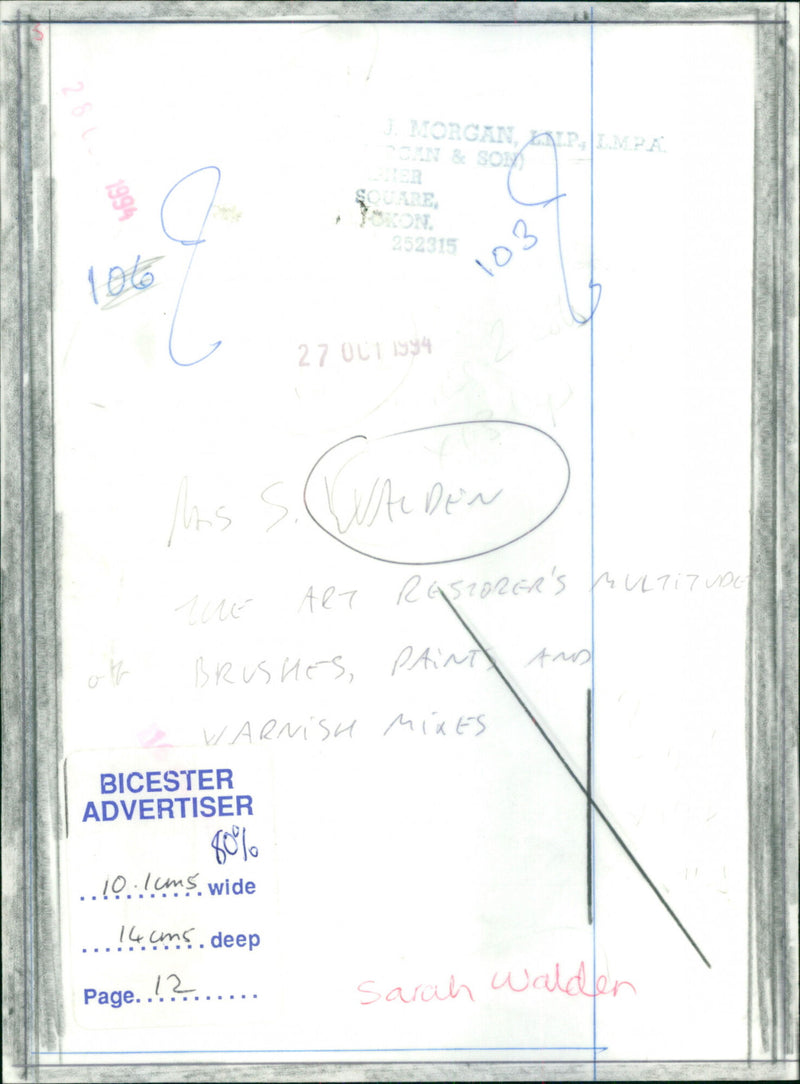 J. MORGAN, LIIP., I.M.P.A.
& SON)
SQUARE,
252315
1994
106
103
27 OCT 1994
Mrs S. WALDEN
THE ART RESTORER'S MULTITUDE
BRUSHES, PAINTS AND
WARNISH MIXES
BICESTER
ADVERTISER
80%
10.1cms wide
14cms deep
Page 12
Sarah Walden